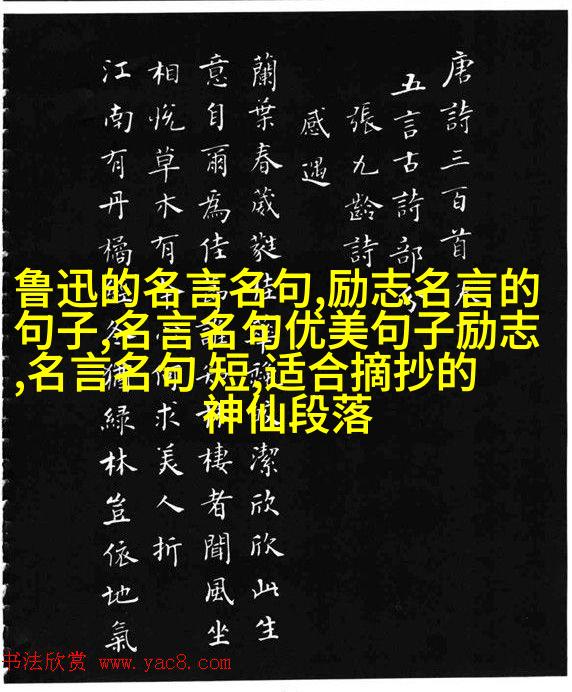 唐詩三百首
五言古詩部
張九齡詩
感遇
蘭葉春葳蕤潔欣欣此生
意自爾為佳棲者聞風坐
相悅草木有求美人折
江南有丹橘綠林豈依地氣
鲁迅的名言名句,励志名言的
句子,名言名句优美句子励志
,名言名句 短,适合摘抄的
神仙段落
书法欣赏 www.yac8.com